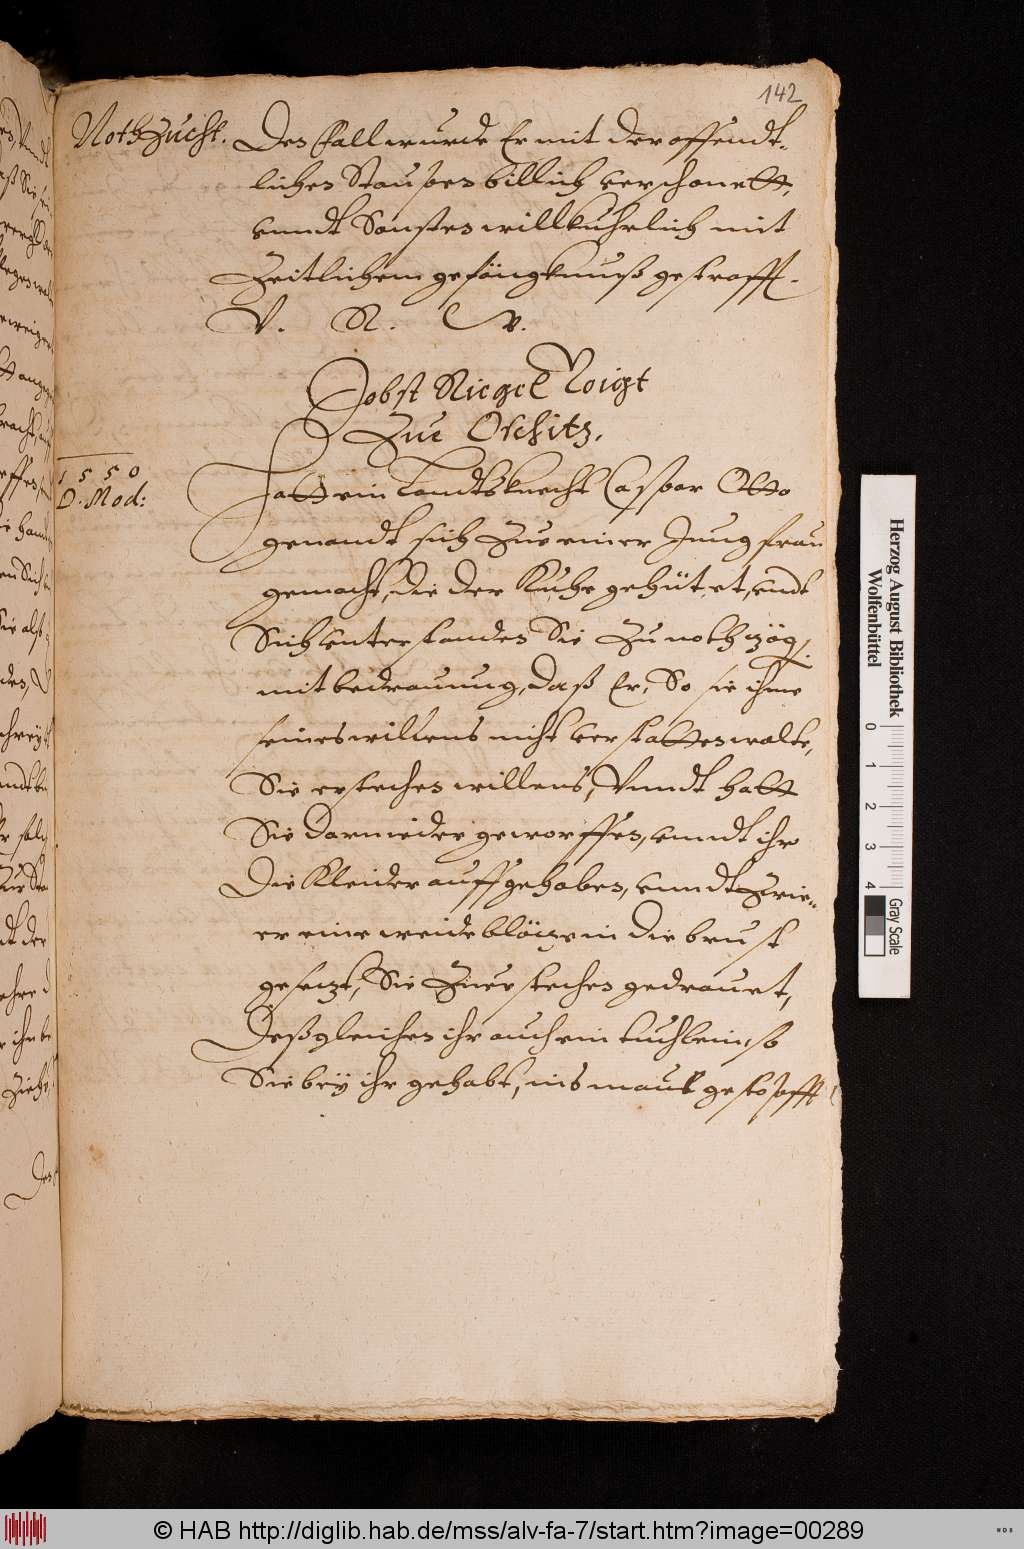 142
Nothzucht.
Des Fall wurde Er mit der offendt-
lichen Staupen billich verschonett,
vnndt Sonsten willkuhrlich mit
Zeitlichem gefängknuß gestrafft.
V. R. W.
Jobst Riegel Voigt
Zue Oschitz.
1550
D. Mod:
Hatt ein Landtsknecht Casspar Otto
genandt sich Zue einer Jungfrau
gemacht, die der Kuhe gehütet, vndt
Sich vnterstanden Sie Zu nothzög.
mit bedrauung, daß Er, So sie ihme
seines willens nicht verstatten wolte,
Sie erstechen willens, Vnndt hatt
Sie darnieder geworffen, vnndt ihr
Die Kleider auffgehaben, vnndt
er eine weideblötze in die brust
gesetzt, Sie Zuerstechen gedrauet,
Deßgleichen ihr auch ein tuchlein, so
Sie bey ihr gehabt, ins maul
Herzog August Bibliothek
Wolfenbüttel
0 1 2 3 4
Gray Scale
© HAB http://diglib.hab.de/mss/alv-fa-7/start.htm?image=00289